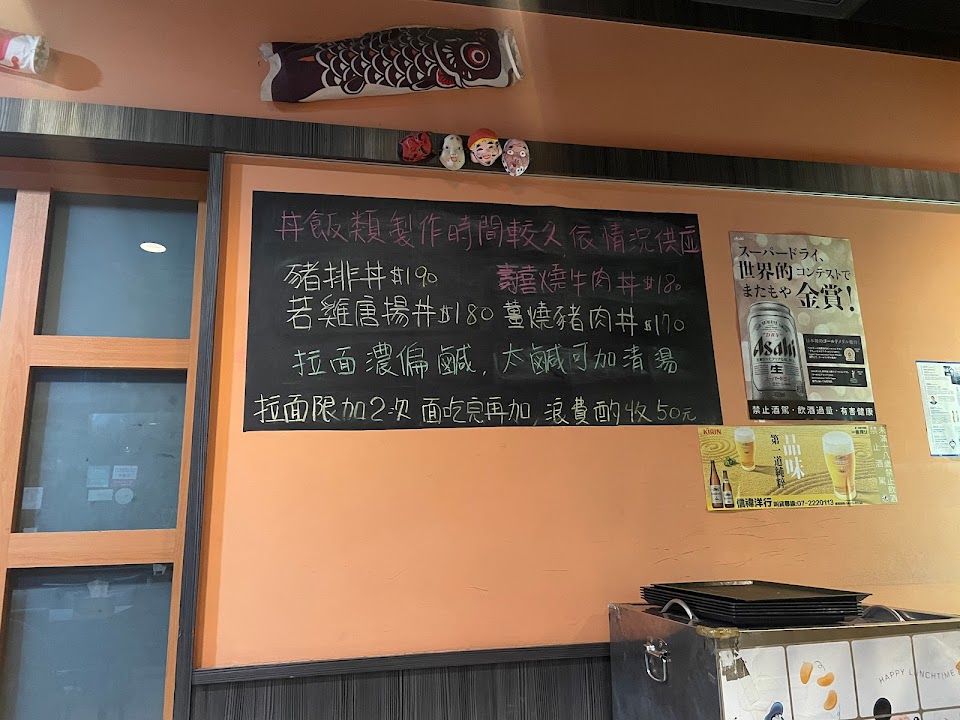 丼飯類製作時間較久,依情況供應
豬排丼$190
壽喜燒牛肉丼$180
若雞唐揚丼$180
薑燒豬肉丼$170
拉面濃偏鹹,太鹹可加清湯
拉面限加2次 面吃完再加,浪費酌收50元
スーパードライ、
世界的コンテストで
またもや金賞!
Asahi
生
禁止酒駕・飲酒過量・有害健康
KIRIN
品味
第一道純粹
信禕洋行
07-2220113
未滿十八歲禁止飲酒
禁止酒駕
HAPPY LUNCHTIME